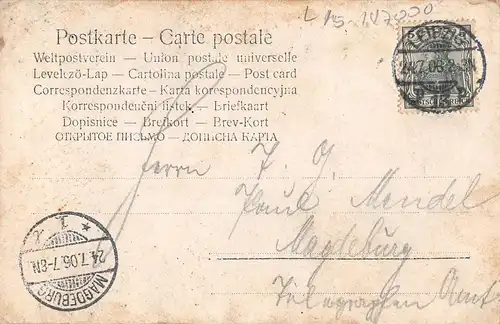 L 15-1.V7000
Postkarte – Carte postale
Weltpostverein – Union postale universelle
Levelező-Lap – Cartolina postale – Post card
Correspondenzkarte – Karta korespondencyjna
Korrespondenční listek – Brefkaart
Dopisnice – Brevkort – Brev-Kort
ОТКРЫТОЕ ПИСЬМО – ДОПИСНА КАРТА
LEIPZIG
24.7.06
Herrn P. G.
Paul Mendel
Magdeburg
Telegraphen Amt
MAGDEBURG
24.7.06.7-8N.
* 1